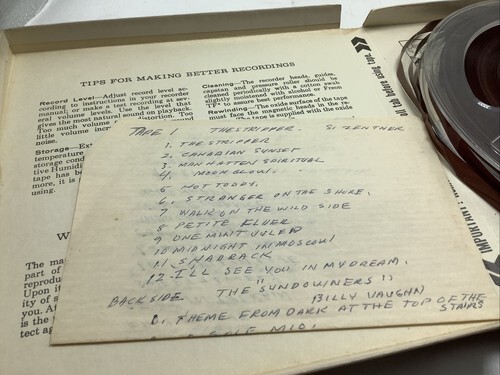 TIPS FOR MAKING BETTER RECORDINGS
Record Level—Adjust record level ac-
cording to instructions in your recorder
manual, or make a test recording at sev-
eral volume levels. Use the level that
gives the most natural sound on playback.
Too much volume distortion. Too
little volume incre
noise.
Storage—Ex
temperature
storage cond
tive Humidi
tape has be
more, it is
using.
Cleaning—The recorder heads, guides,
capstan and pressure roller should be
cleaned periodically with a cotton swab
slightly moistened with alcohol or Freon
TF* to assure best performance.
Rewinding—The oxide surface of the tape
must face the magnetic heads in the re-
The tape is supplied with the oxide
TAPE 1 THE STRIPPER SI ZENTNER
1. THE STRIPPER
2. CANADIAN SUNSET
3. MANHATTEN SPIRITUAL
4. MOON GLOW.
5 HOT TODDY.
6. STRANGER ON THE SHORE.
7 WALK ON THE WILD SIDE
8 PETITE FLUER
9 ONE MINT JULEP
10 MIDNIGHT IN MOSCOW
11 SHADRACK
12 - I'LL SEE YOU IN MY DREAM.
BACK SIDE THE "SUNDOWNERS"
BILLY VAUGHN
1. THEME FROM DARK AT THE TOP OF THE
STAIRS
W
The ma
part of
reprodu
Upon it
ity of s
you. At
is the
tect aga
tab before using tape
IMPORTANT: